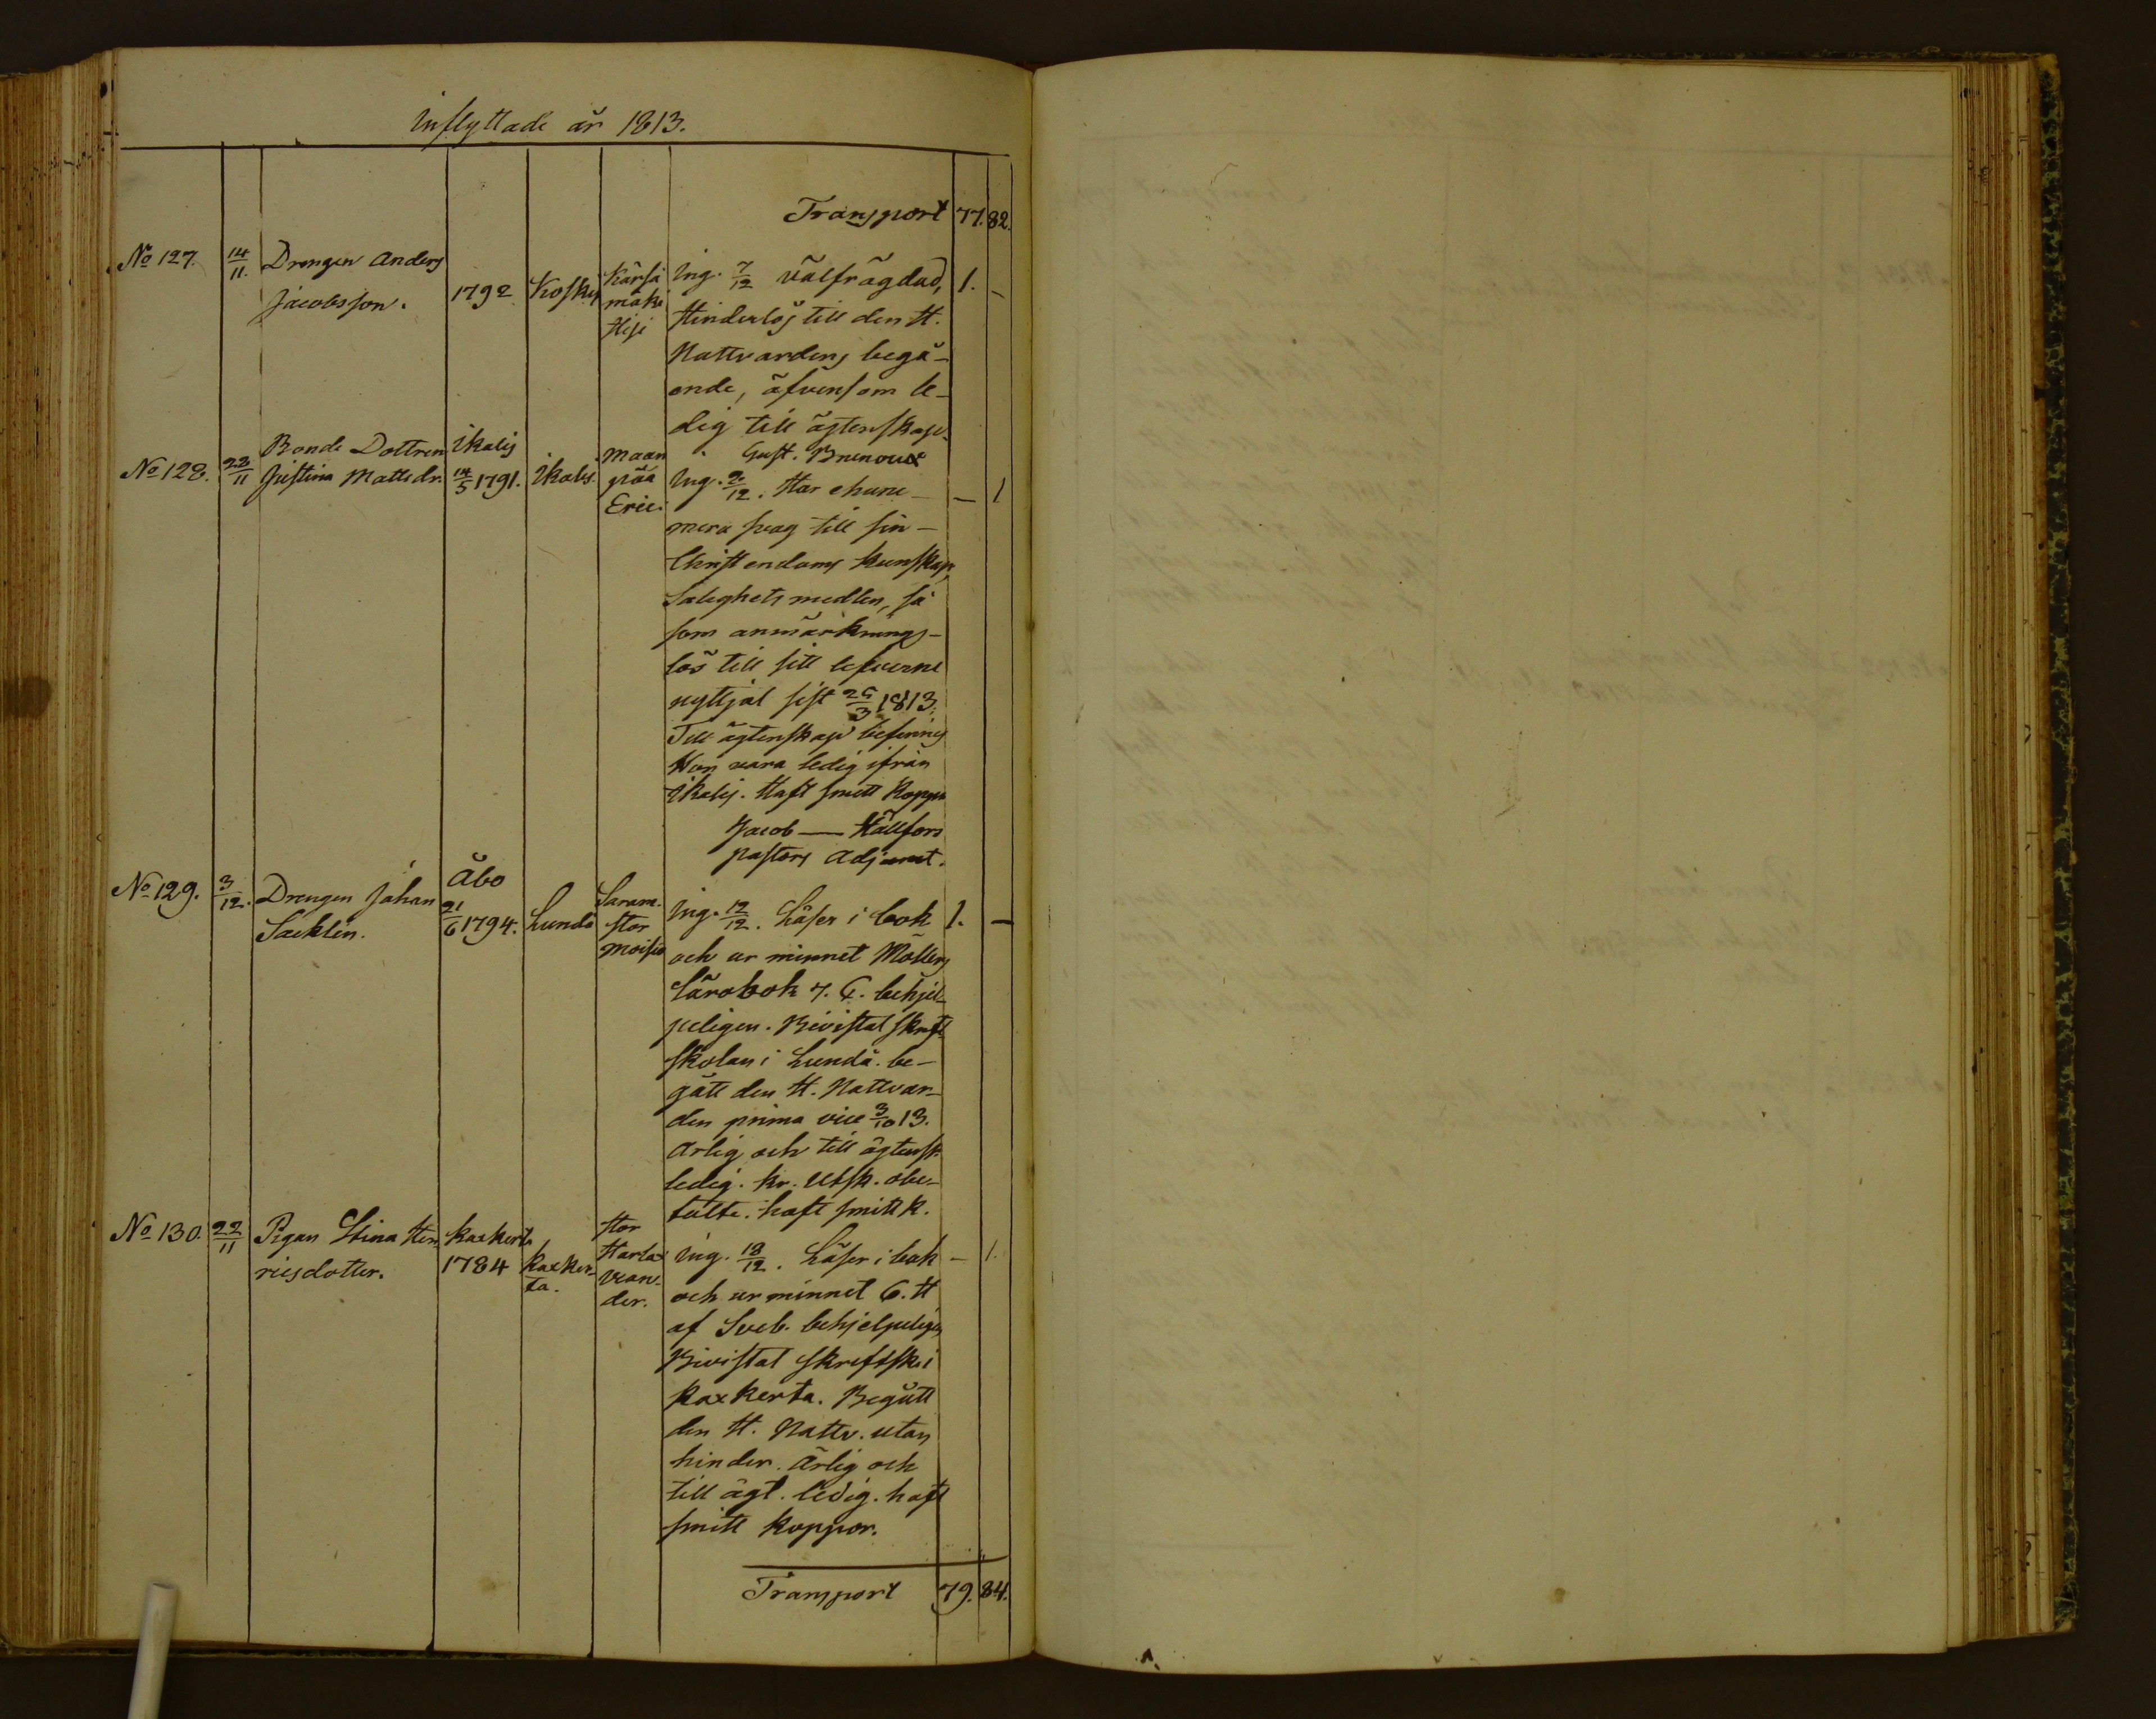 Inflyttade år 1813.
Transport 77. 82.
No 127. 14/11. Drengen Anders Jacobsson. 1792 Koskis Kärsämäki Hisi
Ing. 7/12 välfrägdad, 1. –
Hinderlös till den H.
Nattvardens begå-
ende, äfvensom le-
dig till ägtenskap.
Gust. Brenoux
No 128. 23/11 Bonde Dottren Justina Mattsdr. Ikalis 14/5 1791. Ikalis. Maanpää Eric.
Ing. 2/12. Har ehuru – – 1
mera svag till sin –
Christendoms kunskap,
Salighets medlen, så
som anmärknings-
lös till sitt lefverne
nyttjat sist 25/3 1813.
Till ägtenskap befinnes
Hon vara ledig ifrån
Ikalis. Haft smitt Koppor
Jacob – Hällfors
pastors Adjunct.
No 129. 3/12. Drengen Johan Sacklin. Åbo 21/6 1794. Lundo Saram. stor moisio
Ing. 12/12. Läser i bok 1. –
och ur minnet Möllers
Lärobok 7. C. behjel-
peligen. Bivistat skrift
skolan i Lundå. be-
gått den H. Nattvar-
den prima vice 3/10 13.
Arlig och till ägtensk.
ledig. Kr. Utsk. obe-
talte. haft smitt k.
No 130. 22/11 Pigan Stina Hen- ricsdotter. Kaxkerta 1784 Kaxker- ta. Stor Harlax
Ing. 18/12. Läser i bok – 1.
och ur minnet C. H
af Sveb. behjelpeligen
Bivistat skriftsk. i
Kaxkerta. Begått
den H. Nattv. utan
hinder. Ärlig och
till ägt. ledig. haft
smitt koppor.
Transport 79. 84.